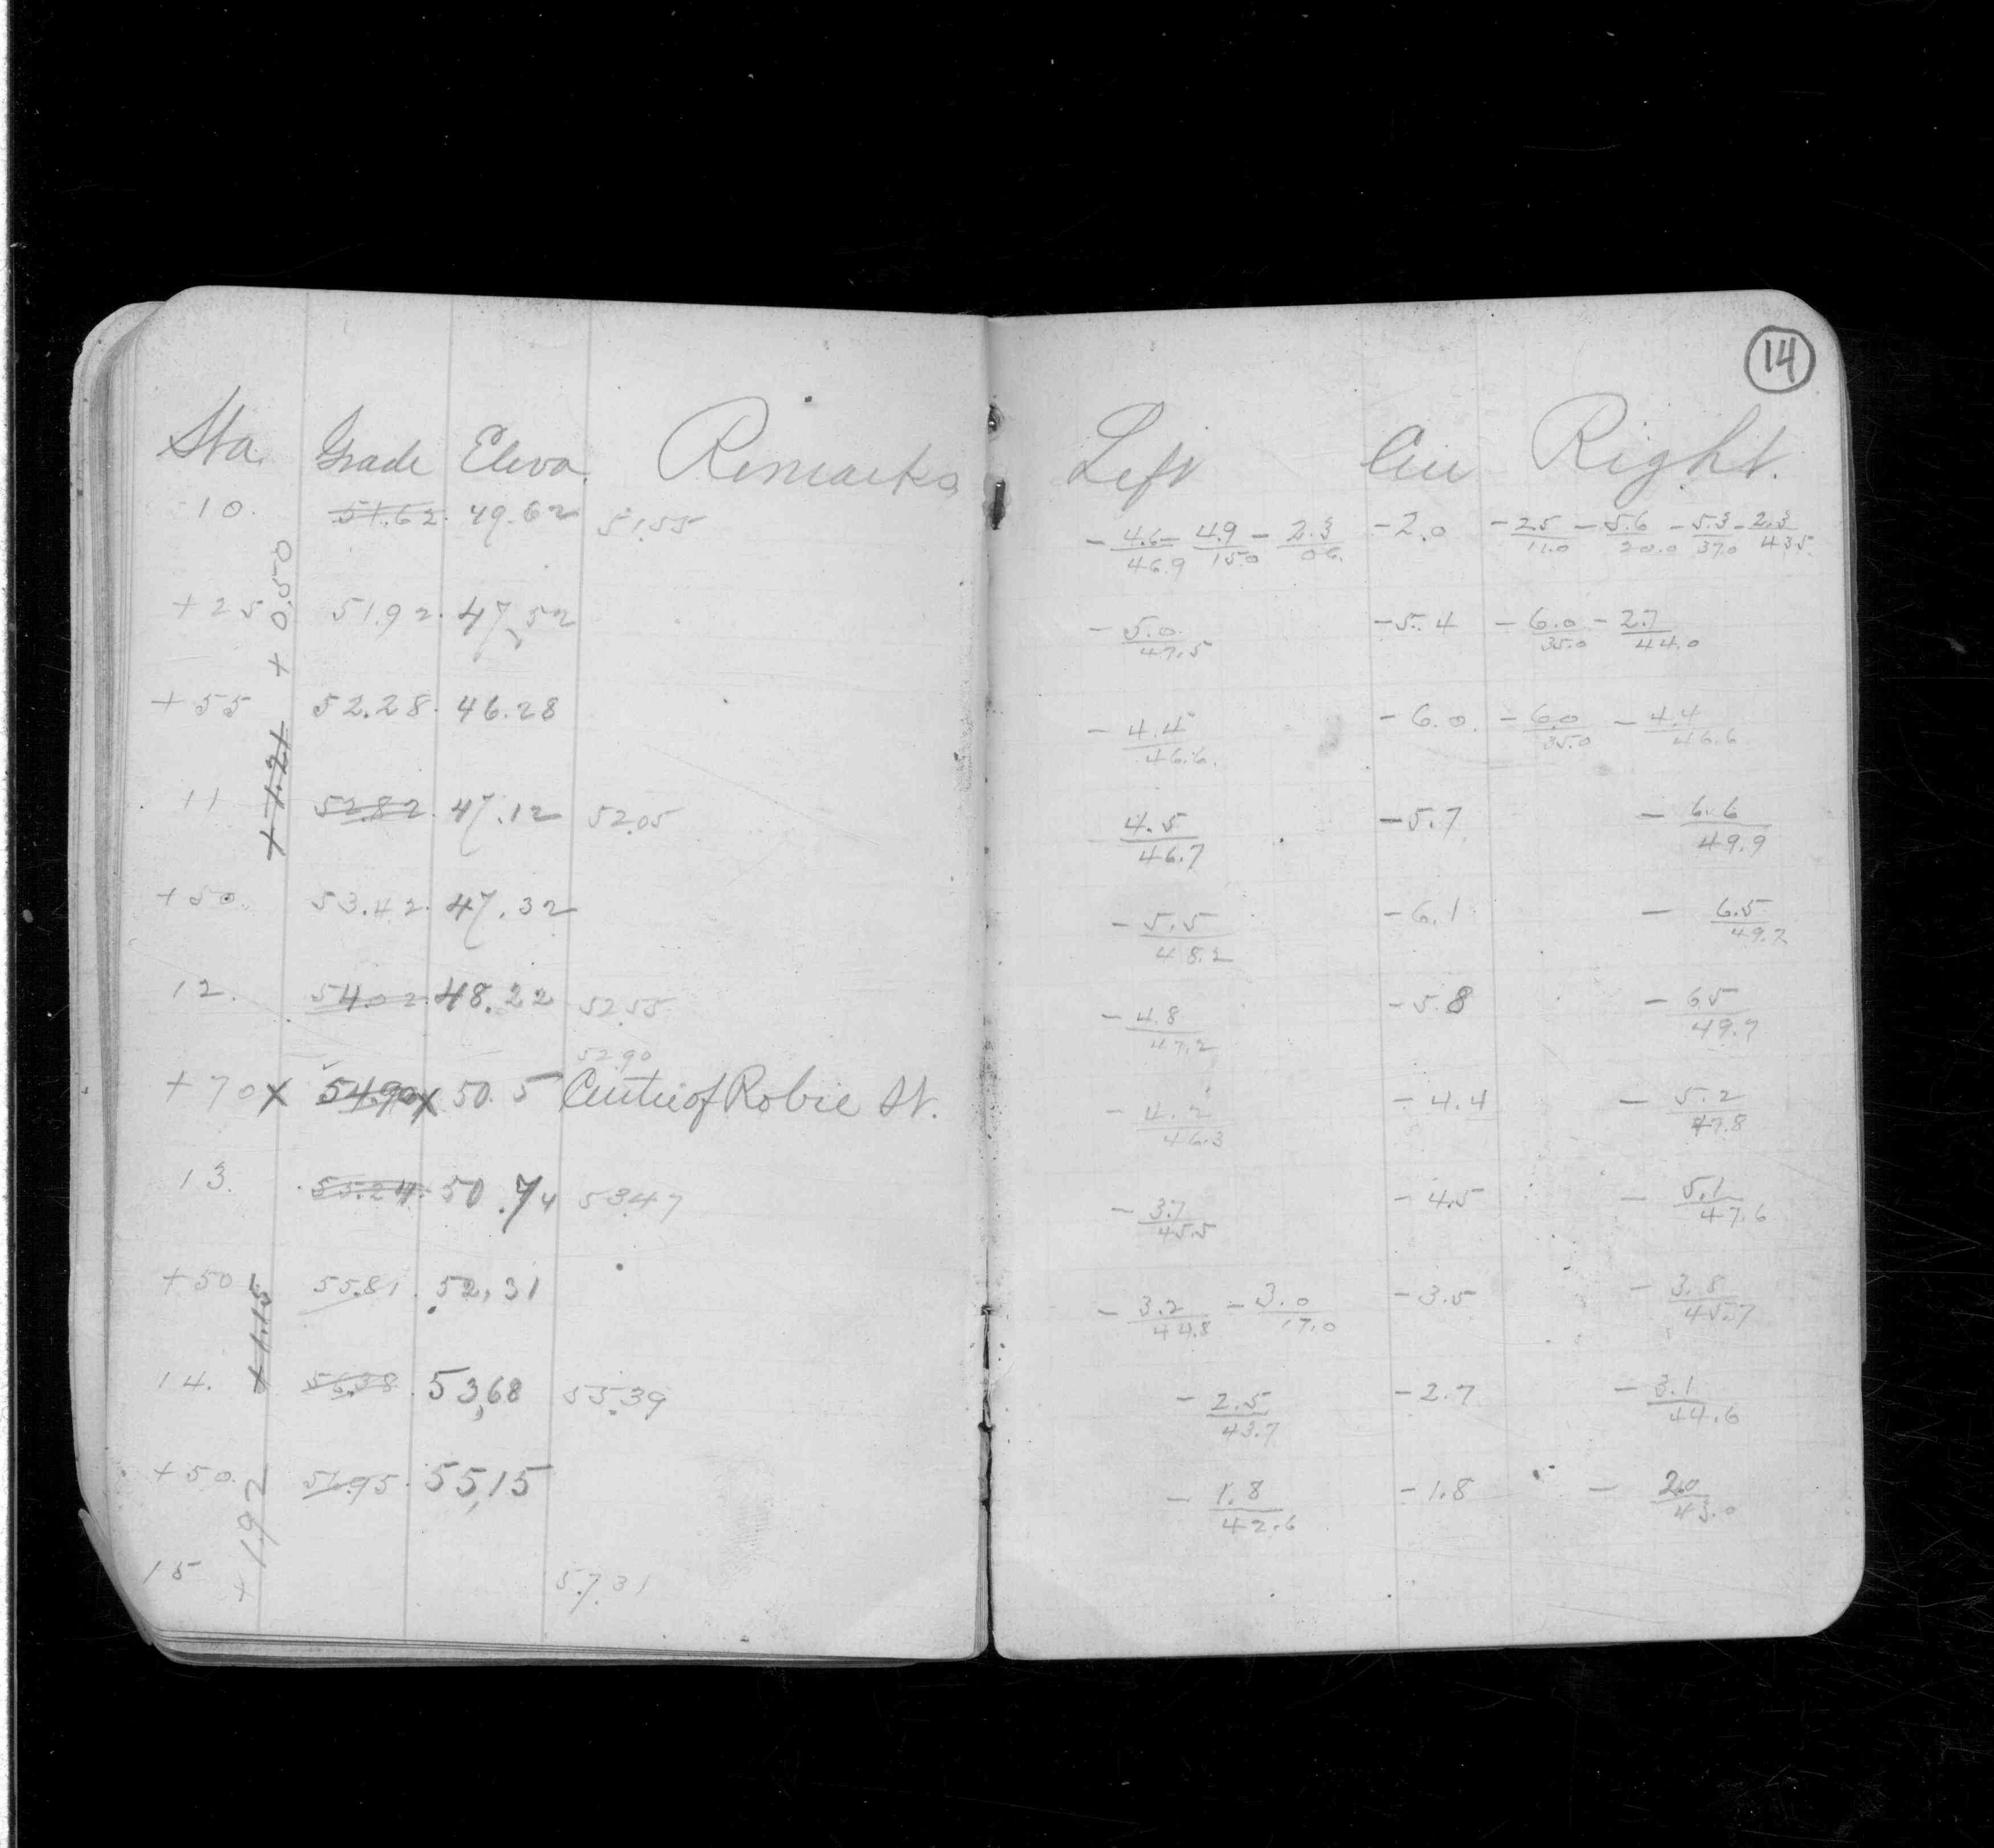 14
Sta. Grade Eleva. Remarks Left Cen Right.
10. 51.62 49.62 51.55 - 4.6/46.9 - 4.9/15.0 - 2.3/06. - 2.0 - 2.5/11.0 - 5.6/20.0 - 5.3/37.0 - 2.3/43.5
+ 0.50
+ 25 51.92 47.52 - 5.0/47.5 - 5.4 - 6.0/35.0 - 2.7/44.0
+ 55 52.28 46.28 - 4.4/46.6. - 6.0. - 6.0/35.0 - 4.4/46.6
+ 1.21
11 52.82 47.12 52.05 - 4.5/46.7 - 5.7 - 6.6/49.9
+ 50. 53.42 47.32 - 5.5/48.2 - 6.1 - 6.5/49.7
12. 54.02 48.22 52.55 - 4.8/47.2 - 5.8 - 6.5/49.7
52.90
+ 70 x 54.90 x 50.5 Centre of Robie St. - 4.2/46.3 - 4.4 - 5.2/47.8
13. 55.24 50.74 53.47 - 3.7/45.5 - 4.5 - 5.1/47.6
+ 50 55.81 52.31 - 3.2/44.8 - 3.0/17.0 - 3.5 - 3.8/45.7
+ 1.15
14. 56.38 53.68 55.39 - 2.5/43.7 - 2.7 - 3.1/44.6
+ 50. 56.95 55.15 - 1.8/42.6 - 1.8 - 2.0/43.0
+ 1.92
15 57.31